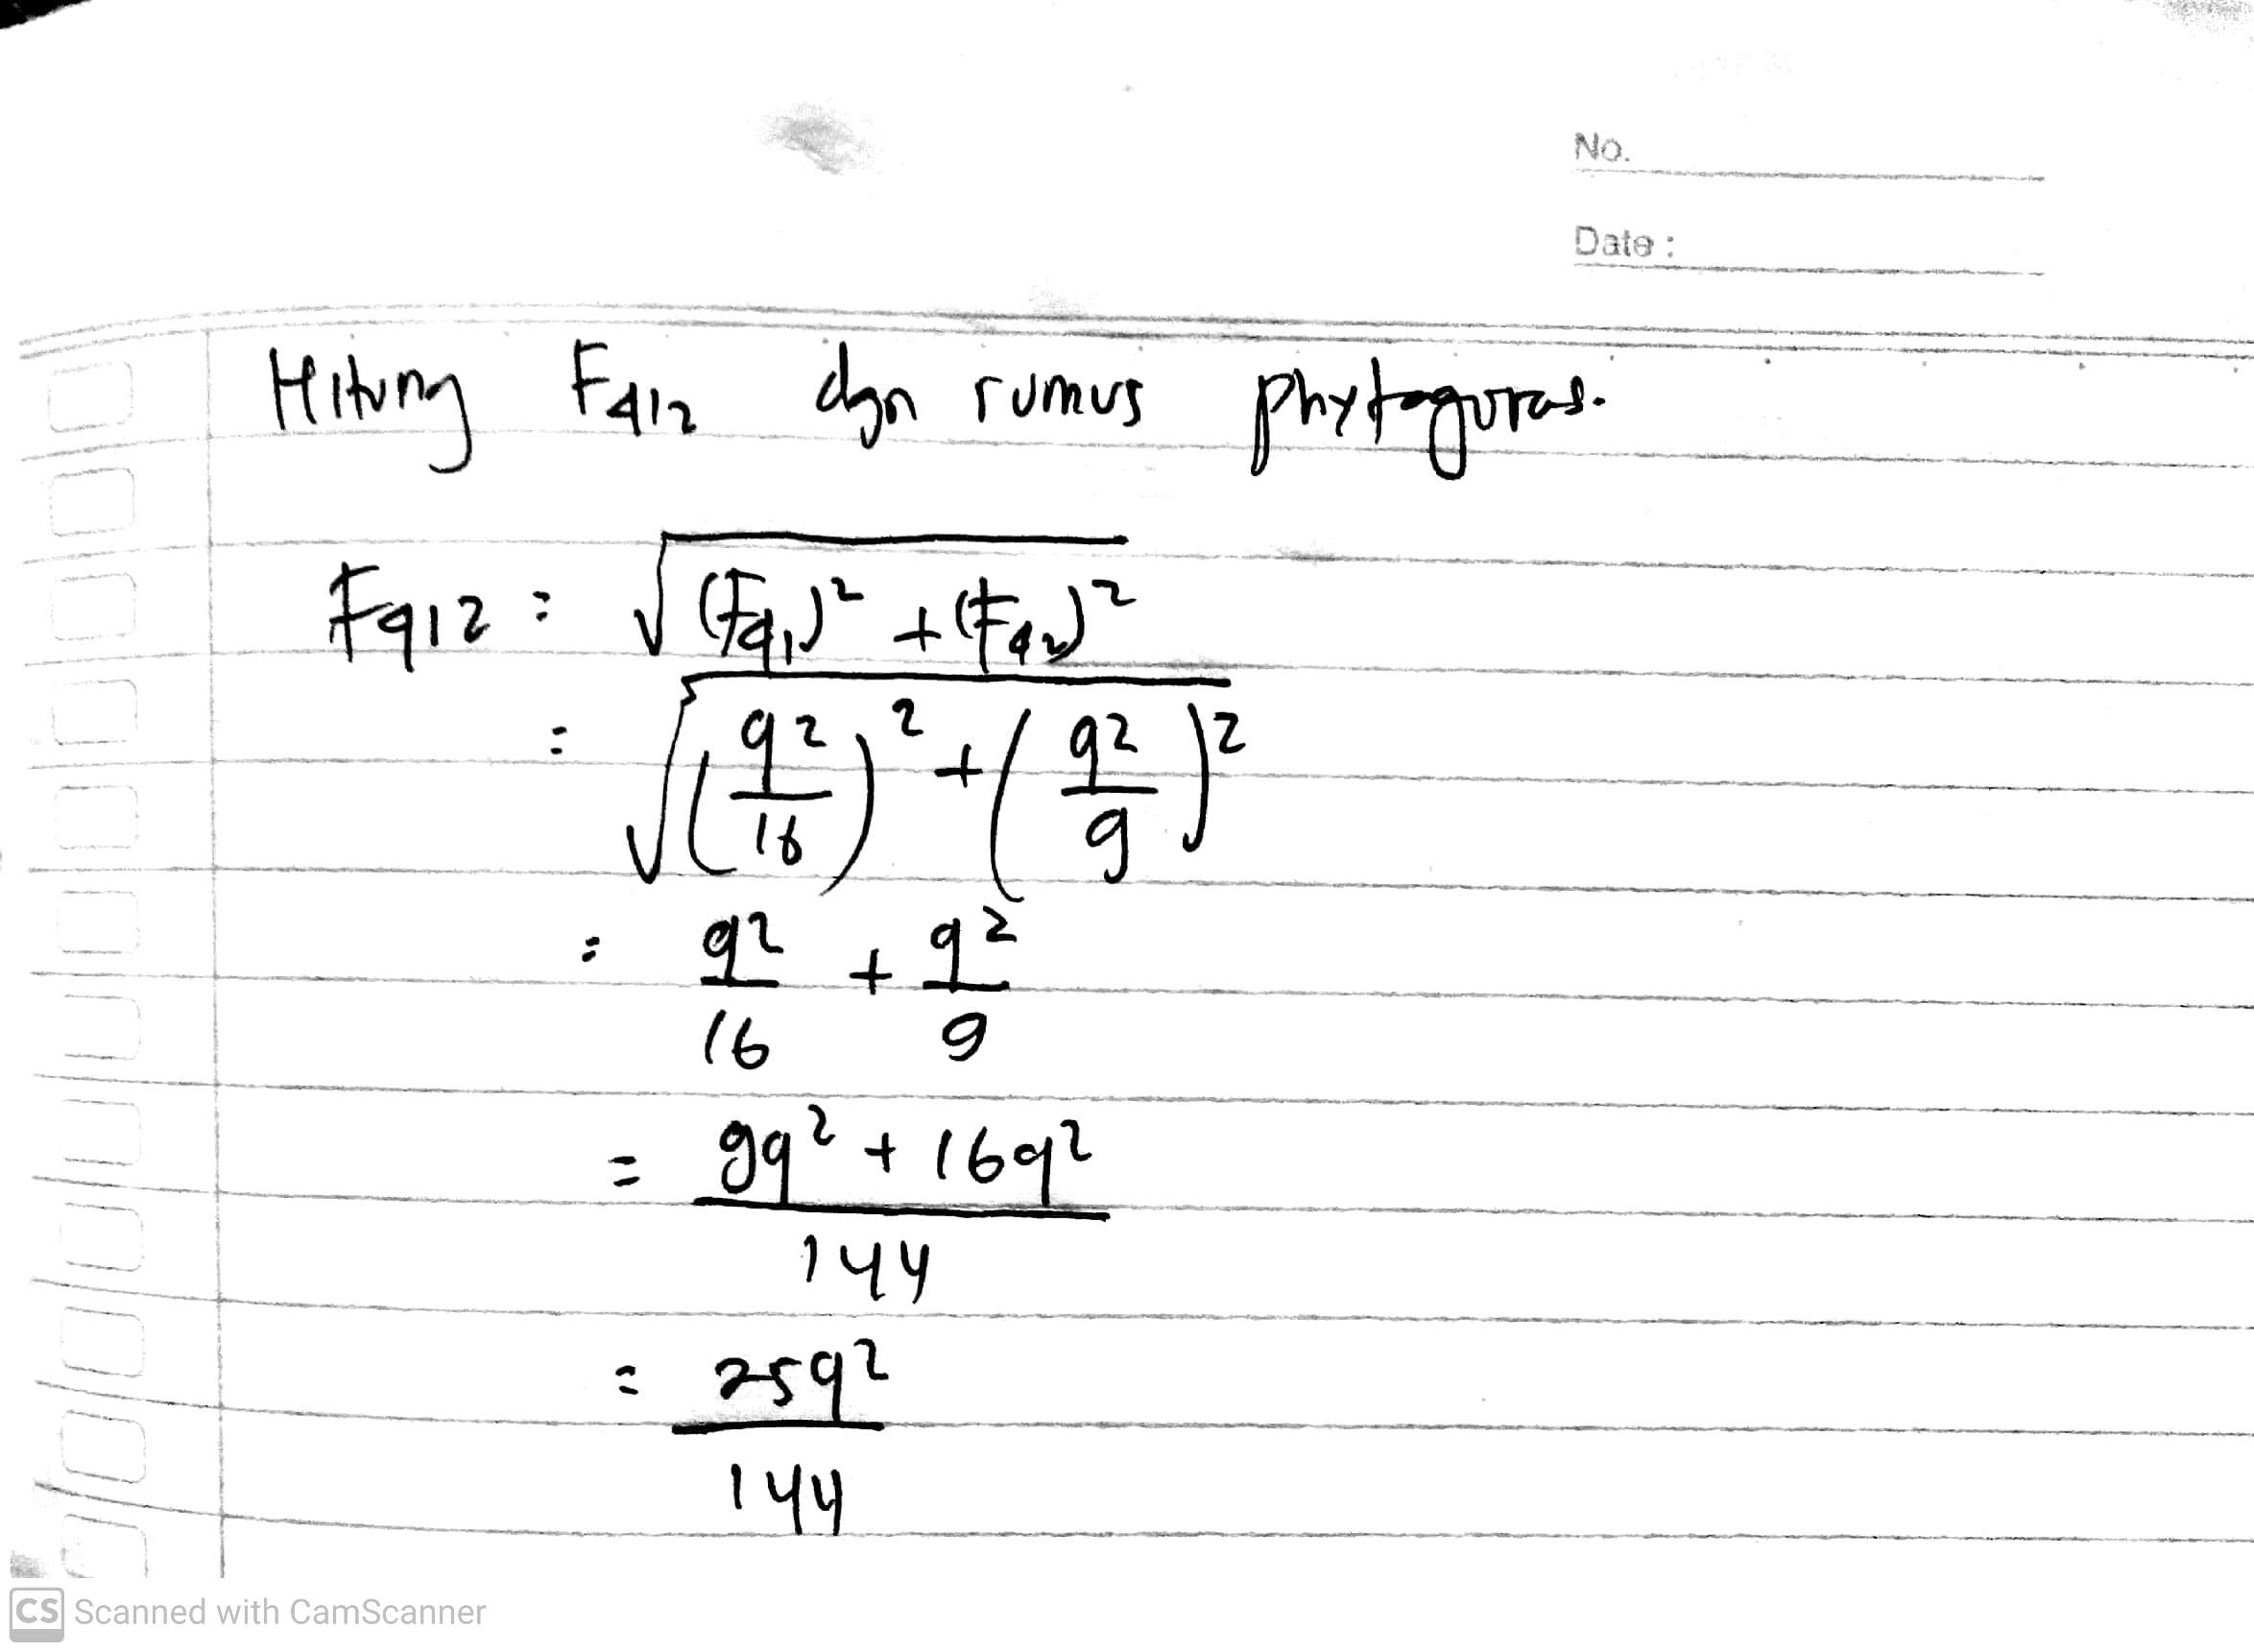 No.
Date :
Hitung Fq12 dgn rumus phytagoras.
Fq12 = √(Fq1)² + (Fq2)²
= √(q²/16)² + (q²/9)²
= q²/16 + q²/9
= 9q² + 16q² / 144
= 25q² / 144
CS Scanned with CamScanner